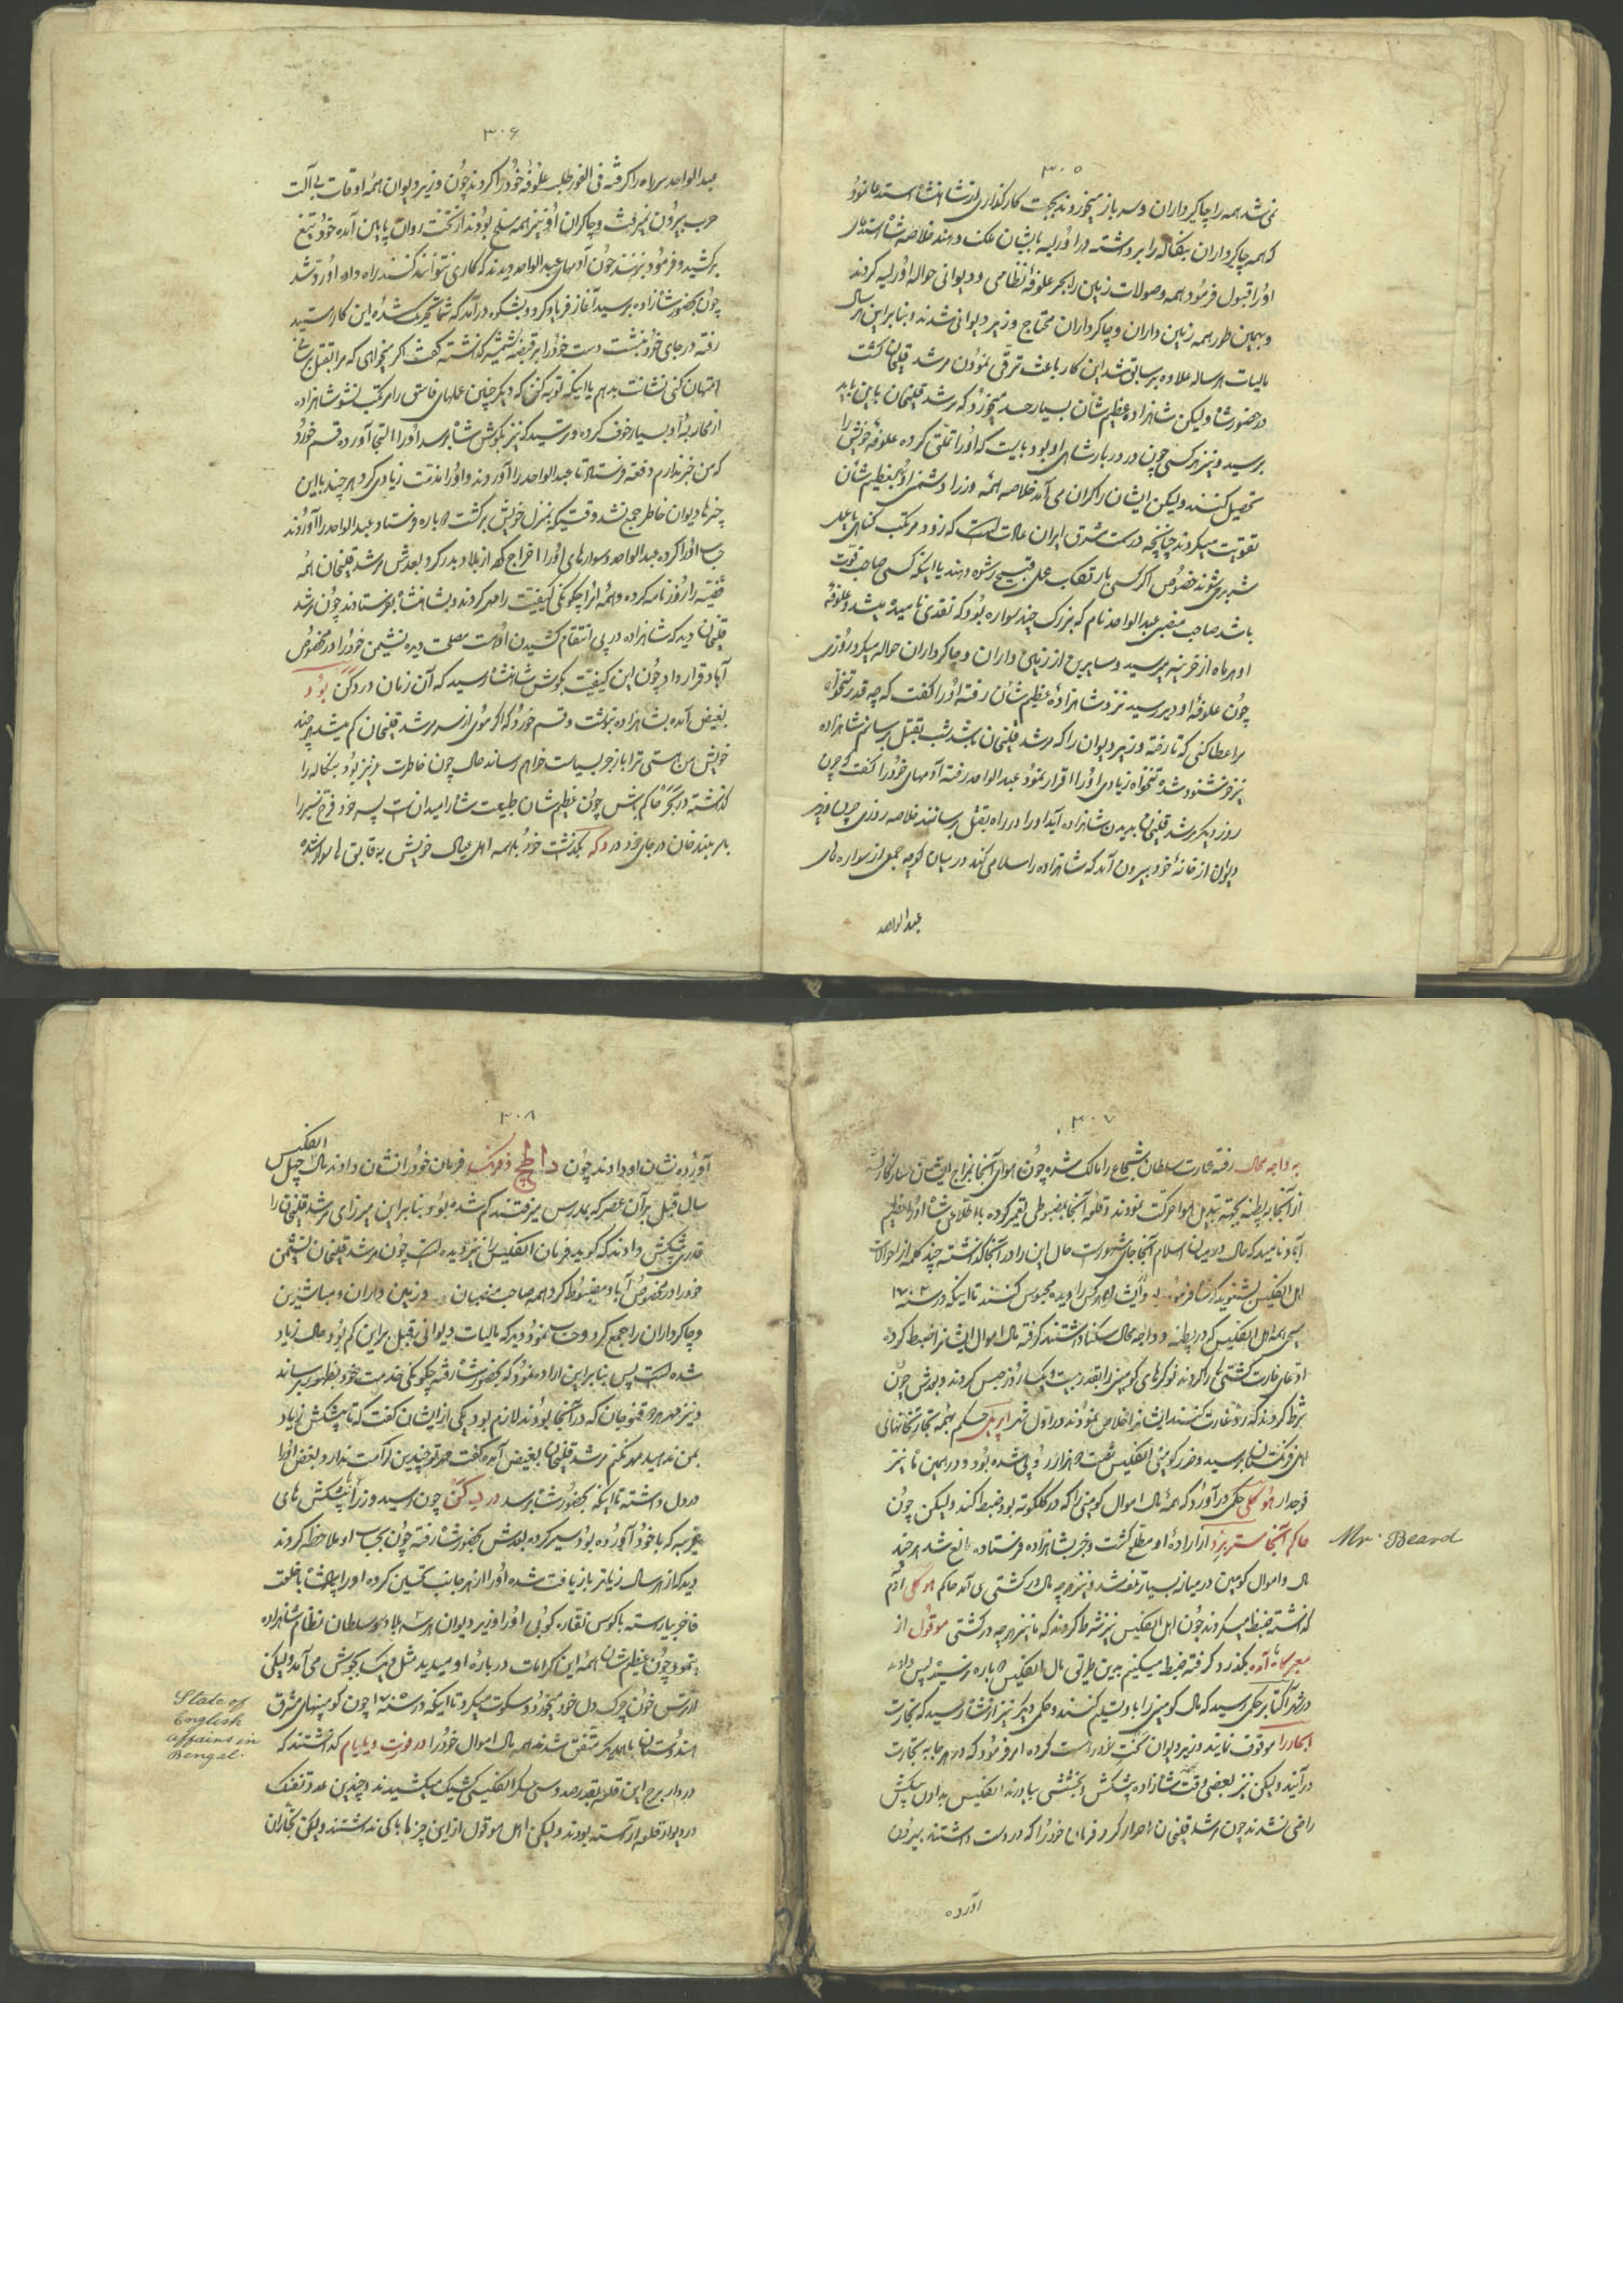 ۳۰۵
نمی شد همه را چاکرداران و سرباز میخوردند بجهت کارگذاری از شاهنشاه استدعا نمود
که همه چاکرداران بنگاله را برداشته در اورلیه بایشان ملک دهند خلاصه شاه استدعای
اورا قبول فرمود همه وصولات زمین را بجز علوفهٔ نظامی و دیوانی حواله اورلیه کردند
و بهمین طور همه زمین داران و چاکرداران محتاج وزیر دیوانی شدند و بنابراین هر سال
مالیات هرساله علاوه بر سابق شد این کار باعث ترقی نمودن مرشد قلیخان گشت
در حضور شاه ولیکن شاهزاده عظیم شان بسیار حسد میخورد که مرشد قلیخان باین پایه
برسید و نیز هر کسی چون در دربار شاهی او بود بایست که اورا تملق کرده علوفهٔ خویش را
تحصیل کنند ولیکن ایشان را گران می آمد خلاصه همه وزرا دشمنی او بعظیم شان
تقویت میکردند چنانچه در سمت مشرق ایران عادت است که زود مرتکب گناهی یا عمل
شریری شوند خصوص اگر کسی بارتکاب عمل قبیح رشوه دهند یا اینکه کسی صاحب قوت
باشد صاحب منصبی عبدالواحد نام که بزرگ چند سواره بود که نقدی نامیده میشد و علوفهٔ
او هرماه از خزینه میرسید و سایرین از زمین داران و چاکرداران حواله میکرد روزی
چون علوفهٔ او دیر رسید نزد شاهزادهٔ عظیم شان رفته اورا گفت که چه قدر تنخواه
مرا عطا کنی که تا رفته وزیر دیوان را که مرشد قلیخان باشد شب بقتل برسانم شاهزاده
نیز خوشنود شده تنخواه زیادی اورا اقرار نمود عبدالواحد رفته آدمهای خود را گفت که چون
روز دیگر مرشد قلیخان بدیدن شاهزاده آید اورا در راه بقتل برسانند خلاصه روزی چون وزیر
دیوان از خانهٔ خود بیرون آمد که شاهزاده را سلامی کند در میان کوچه جمعی از سواره های
عبدالواحد
۳۰۶
عبدالواحد سر راه را گرفته فی الفور طلب علوفهٔ خود را کردند چون وزیر دیوان همه اوقات بی آلت
حرب بیرون نمیرفت و چاکران او نیز همه مسلح بودند از تخت روان پایین آمده خود تیغ
برکشید و فرمود بزنند چون آدمهای عبدالواحد دیدند که کاری نتوانند کنند راه داده اورد شد
چون بحضور شاهزاده برسید آغاز فریاد کرد و بشکوه درآمد که شما محرک شدهٔ این کار استید
رفته در جای خود بنشست دست خود را بر قبضهٔ شمشیر گذاشته گفت اگر میخواهی که مرا بقتل برسانی
امتحان کنی نشانت بدهم یا اینکه توبه کنی که دیگر چنین عملهای فاسق را مرتکب نشو شاهزاده
از محاربهٔ او بسیار خوف کرده و ترسید که نیز بگوش شاه برسد اورا التجا آورده قسم خورد
که من خبر ندارم دفعته فرستاد تا عبدالواحد را آوردند و اورا مذمت زیادی کرد هر چند باین
چیزها دیوان خاطر جمع نشد وقتیکه بمنزل خویش برگشت دوباره فرستاد عبدالواحد را آوردند
حساب اورا کرده عبدالواحد و سوارهای اورا اخراج کرد از بلاد بدر کرد بعدش مرشد قلیخان همه
قضیه را روزنامه کرده و همه امرا چگونگی کیفیت را مهر کردند و بشاهنشاه بفرستادند چون مرشد
قلیخان دید که شاهزاده در پی انتقام کشیدن اوست مصلحت دیده نشیمن خود را در مخصوص
آباد قرار داد چون این کیفیت بگوش شاهنشاه رسید که آن زمان در دکن بود
بغیض آمده بشاهزاده بنوشت و قسم خورد که اگر موی از سر مرشد قلیخان کم میشد هر چند
خویش من هستی ترا باز خوب سیاست خواهم رساند حال چون خاطرت عزیز بود بنگاله را
گذشته در بهار حاکم باش چون عظیم شان طبیعت شاه را میدانست پسر خود فرخ سیر را
با سربلند خان در جای خود در دکه بگذشت خود با همه اهل عیال خویش به قایق ها سوار شده
۳۰۷
به راجه محال رفته عمارت سلطان شجاع را مالک شده چون هوای آنجا بمزاج ایشان سازگار نشد
از آنجا به پطنه بجهته تبدیل هوا حرکت نمودند و قلعهٔ آنجا بمضبوطی تعمیر کرده باطلاع شاه اورا عظیم
آباد نامید که حال در میان اسلام آنجا جای مشهور است حال این را در آنجا گذاشته چند کلمه از احوالات
اهل انگلیس بشنوید که شاه فرموده بود ایشان را هر کس را دیده محبوس کنند تا اینکه در سنه ۱۷۰۲
مسیحی همه اهل انگلیس که در پطنه و راجه محال سکنا داشتند گرفته مال اموال ایشانرا ضبط کرده
ادعای غارت کشتی ها را کردند نوکرهای کومپنی را بقدر بیست و یک روز حبس کردند و بعدش چون
شرط کردند که رد غارت کنند ایشانرا خلاص نمودند در اول شهر اپریل حکم بهمه تجار تجارتخانهای
اهل فرنگستان برسید و ضرر کومپنی انگلیس شصت هزار روپی شده بود و در همین ماه نیز
فوجدار هوگلی حکمی درآورد که همهٔ مال اموال کومپنی را که در کلکوته بود ضبط کند ولیکن چون
حاکم آنجا مستر برد از ارادهٔ او مطلع گشت و خبر بشاهزاده فرستاده مانع شد هر چند
Mr. Beard
مال و اموال کومپنی در میان بسیار تلف شد و نیز هر چه مال در کشتی می آمد حاکم هوگلی آدم
گذاشته ضبط میکردند چون اهل انگلیس نیز شرط کردند که ما نیز هر چه در کشتی موقول از
معبر گاه آمده بگذرد گرفته ضبط میکنیم بدین طریق مال انگلیس دوباره پس دادند
در شهر اکتابر حکمی رسید که مال کومپنی را باز تسلیم کنند و حکمی دیگر نیز از شاه رسید که تجارت
ابحار را موقوف نمایند وزیر دیوان راست کرده امر فرمود که در هر جا به تجارت
درآیند ولیکن نیز بعضی وقت شاهزاده پیشکش و بخششی بیاورند انگلیس به دادن پیشکش
راضی نشدند چون مرشد قلیخان اصرار کرد فرمان خود را که در دست داشتند بیرون
آورده
۳۰۸
آورده نشان او دادند چون داچ فرنک فرمان خود را نشان دادند مال انگلیس چهل
سال قبل بر آن عصر که بمدرس میرفتند گم شده بود و بنابراین میرزای مرشد قلیخان را
قدری پیشکش دادند که گوید فرمان انگلیس را نیز دیده است چون مرشد قلیخان نشیمن
خود را در مخصوص آباد مضبوط کرد همه صاحب منصبان و زمین داران و مباشرین
و چاکرداران را جمع کرد و حساب نمود دید که مالیات دیوانی قبل بر این کم بود حال زیاد
شده است پس بنابراین اراده نمود که بحضور شاه رفته چگونگی خدمت خود بظهور برساند
و نیز مهردار قنوجان که در آنجا بودند لازم بود یکی از ایشان گفت که تا پیشکش زیاد
بمن ندهید مهر نکنم مرشد قلیخان بغیض آمده گفت مهر تو چندین کرامت ندارد و بغض اورا
در دل داشته تا اینکه بحضور شاه برسد در دکن چون رسید وزرا را پیشکش های
غریبه که با خود آورده بود سیر کرده بعدش بحضور شاه رفته چون بحساب او ملاحظه کردند
دید که از هر سال زیاتر بازیافت شده اورا از هر جانب تحسین کرده اورا پادشاه با خلعت
فاخر بیاراسته با کوس نقاره کوبی اورا وزیر دیوان هر سه بلاد و سلطان نظام شاهزاده
بنمود چون عظیم شان همه این کرامات در بارهٔ او میدید مثل دیگ بجوش می آمد ولیکن
از ترس خون جگر دل خود میخورد و سکوت میکرد تا اینکه در سنه ۱۷۰۵ چون کومپنیهای مشرق
هندوستان با همدیگر متفق شدند همه مال اموال خود را در فورت ویلیام گذاشتند که
State of
English
affairs in
Bengal.
در دوار برج این قلعه بقدر صد و سی عسکر انگلیسی کشیک میکشیدند و چندین عدد تفنگ
در دیوار قلعه آراسته بودند ولیکن اهل موقول از این چیزها باکی نداشتند ولیکن تجاران